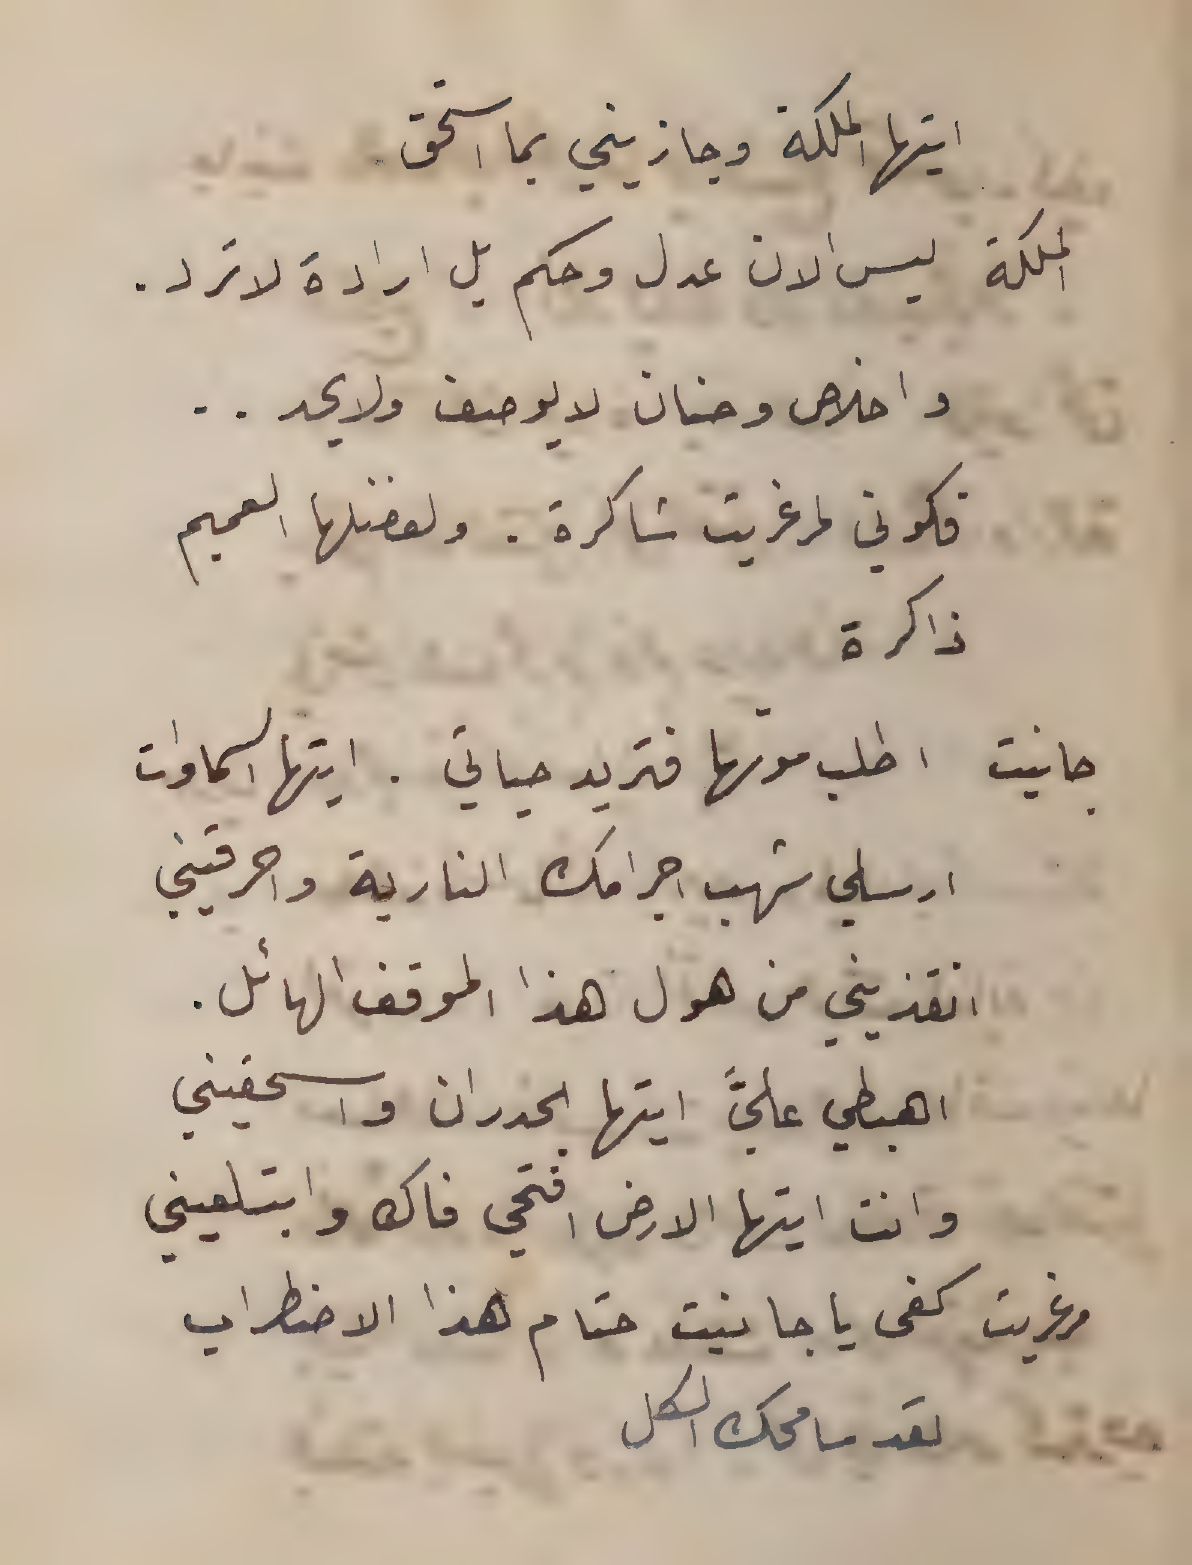 ايتها الملكة وجازيني بما استحق.
الملكة ليس الان عدل وحكم بل ارادة لا ترد.
واخلاص وحنان لا يوصف ولا يحد ..
فكوني لمرغريت شاكرة. ولفضلها العميم
ذاكرة
جانيت اطلب موتها فتريد حياتي. ايتها السماوات
ارسلي شهب اجرامك النارية واحرقيني
انقذيني من هول هذا الموقف الهائل.
اهبطي عليَّ ايتها الجدران واسحقيني
وانت ايتها الارض افتحي فاك وابتلعيني
مرغريت كفى يا جانيت حتام هذا الاضطراب
لقد سامحك الكل